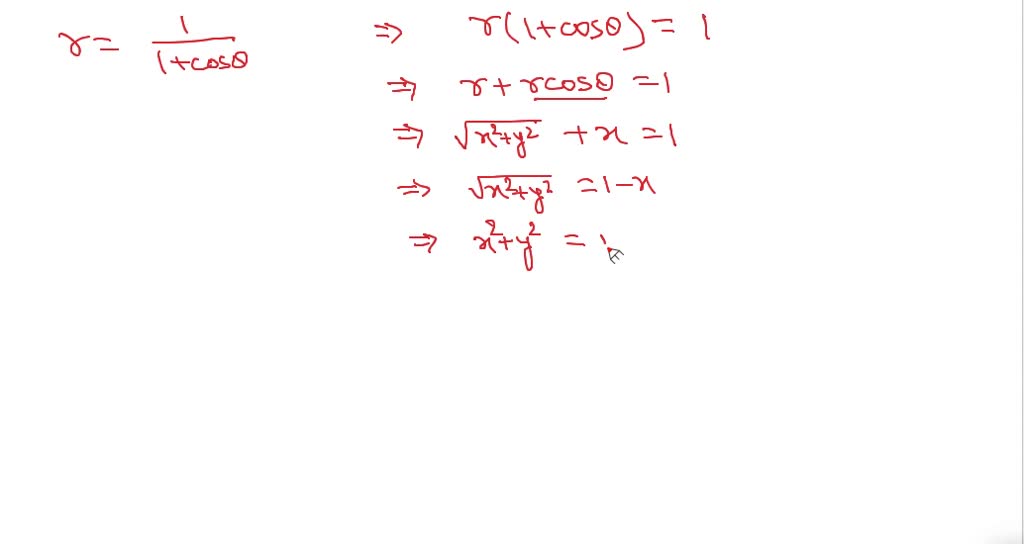 r = 1/(1+cosθ) ⇒ r(1+cosθ) = 1
⇒ r + rcosθ = 1
⇒ √(x²+y²) + x = 1
⇒ √(x²+y²) = 1-x
⇒ x²+y² =